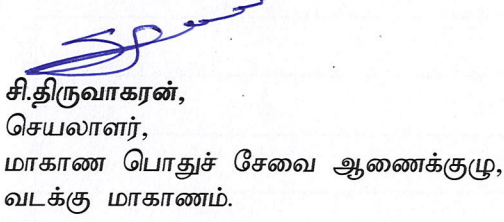 சி.திருவாகரன்,
செயலாளர்,
மாகாண பொதுச் சேவை ஆணைக்குழு,
வடக்கு மாகாணம்.